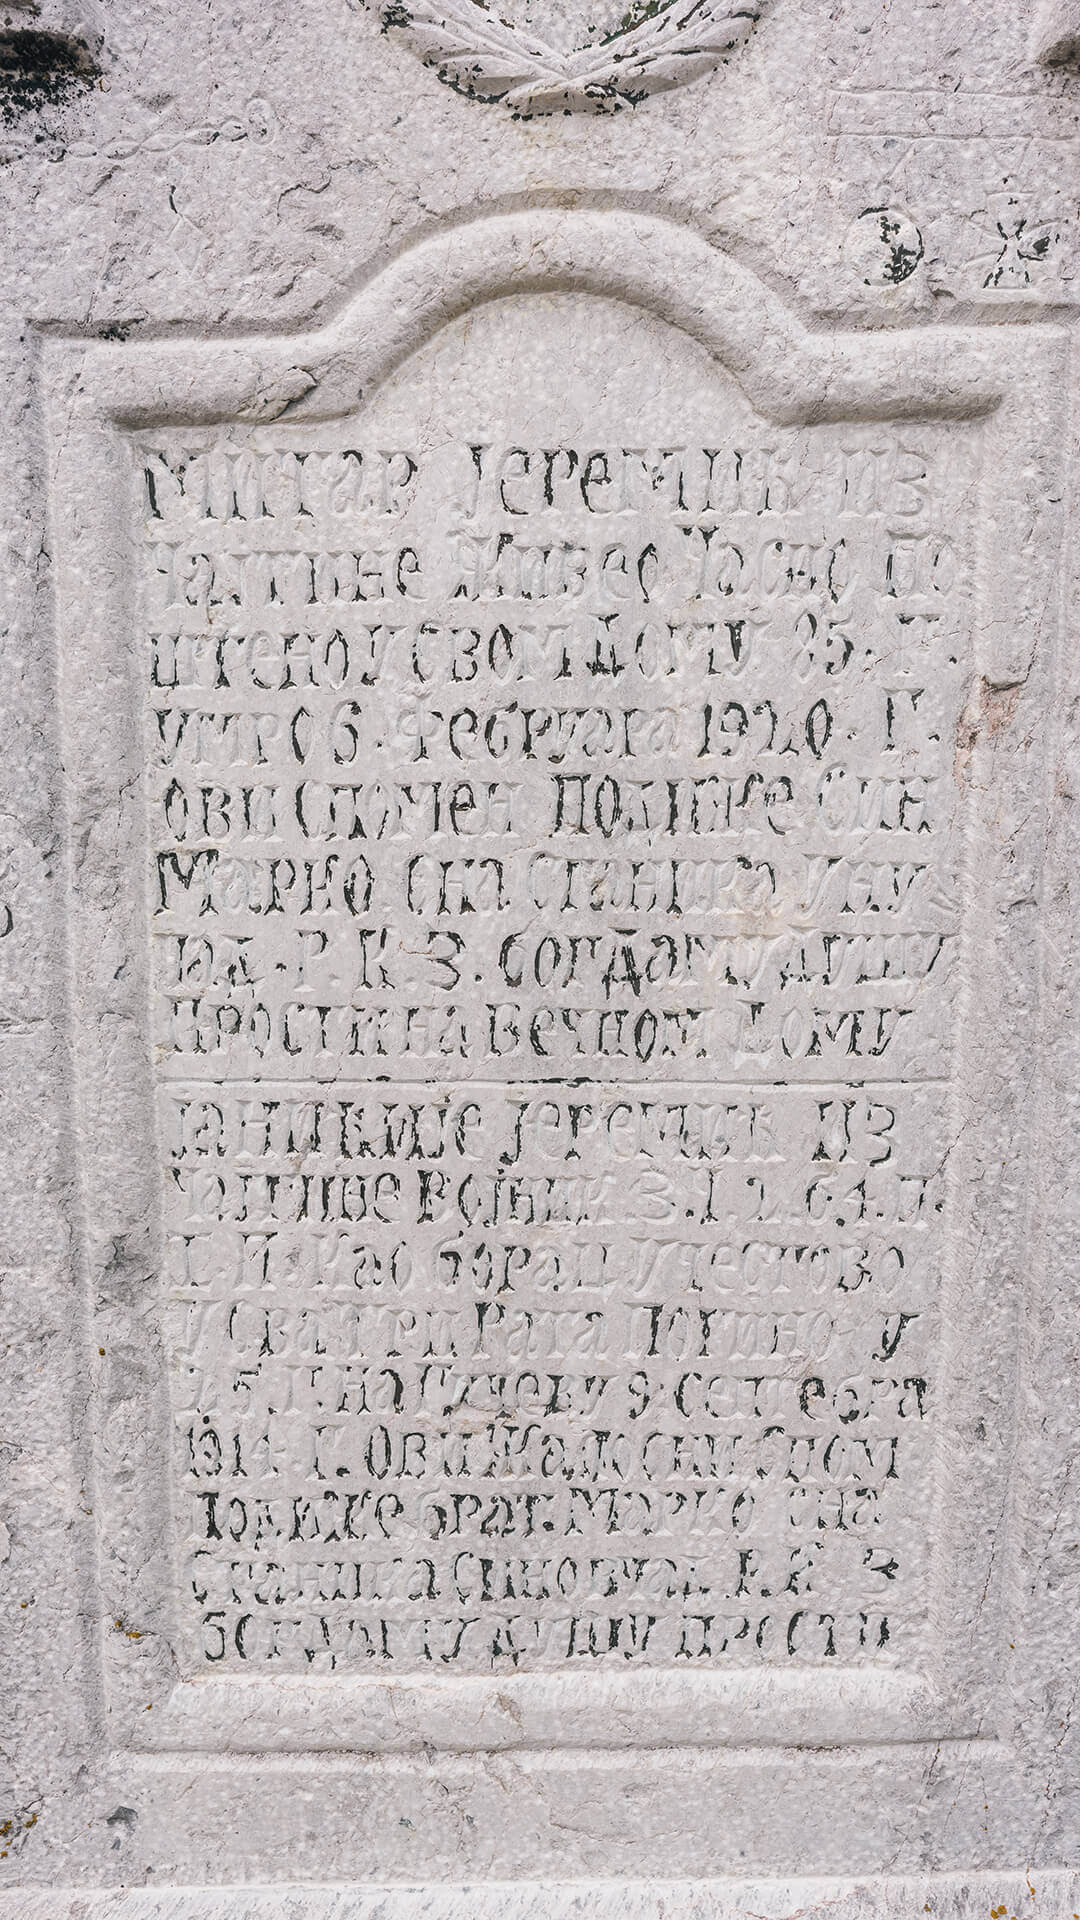 МИТАР ЈЕРЕМИЋ ИЗ
ЧАЈТИНЕ ЖИВЕО ЧАСНО ПО
ШТЕНО У СВОМ ДОМУ 85. Г.
УМРО 6. ФЕБРУАРА 1920. Г.
ОВИ СПОМЕН ПОДИЖЕ СИН
МАРКО СНА СТАНИКА УНУ
ЧАД. Р. К. З. БОГ ДА МУ ДУШУ
ПРОСТИ НА ВЕЧНОМ ДОМУ
ЈАНИЋИЈЕ ЈЕРЕМИЋ ИЗ
ЧАЈТИНЕ ВОЈНИК 3. 1 2. б. 4. П.
I. П. КАО БОРАЦ УЧЕСТВОВО
У СВА ТРИ РАТА ПОГИНО У
Г. НА ГУЧЕВУ 9. СЕПТЕБРА
1914. Г. ОВИ ЖАЛОСНИ СПОМ
ПОДИЖЕ БРАТ. МАРКО СНА
СТАНИКА СИНОВЧАД. Р. К. З
БОГ ДА МУ ДУШУ ПРОСТИ